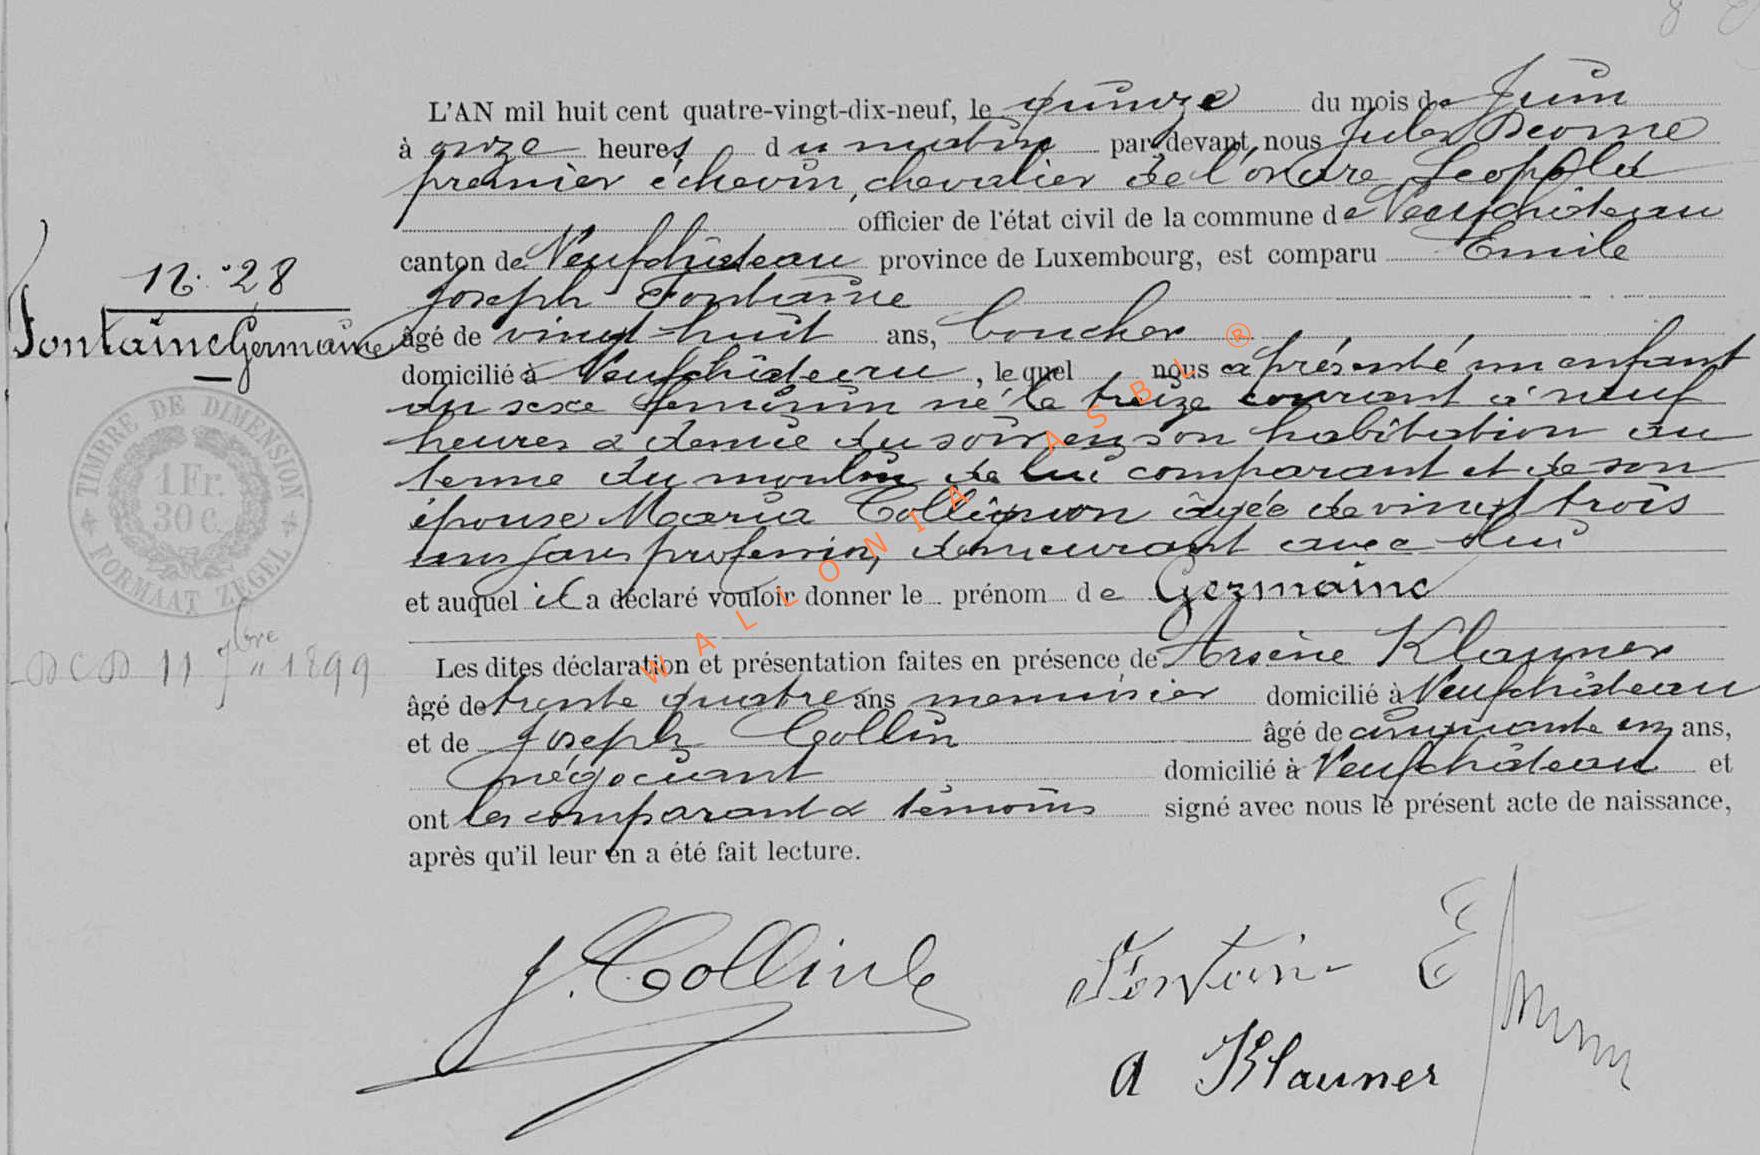 L'AN mil huit cent quatre-vingt-dix-neuf, le quinze du mois de Juin
à onze heures du matin par devant nous Jules
premier échevin, chevalier de l'ordre Léopold
officier de l'état civil de la commune de Neufchâteau
canton de Neufchâteau province de Luxembourg, est comparu Emile
Joseph Fontaine
N.° 28
Fontaine Germaine
âgé de vingt-huit ans, boucher
domicilié à Neufchâteau, lequel nous a présenté un enfant
du sexe féminin né le treize courant à neuf
heures & demie du soir en son habitation au
terme du moulin de lui comparant et de son
épouse Maria Collignon âgée de vingt trois
ans sans profession, demeurant avec lui
et auquel il a déclaré vouloir donner le prénom de Germaine
TIMBRE DE DIMENSION
1 Fr.
30 C.
FORMAAT ZEGEL
DCD 11 7bre 1899
Les dites déclaration et présentation faites en présence de Arsène Klauner
âgé de trente quatre ans menuisier domicilié à Neufchâteau
et de Joseph Collin âgé de cinquante un ans,
négociant domicilié à Neufchâteau et
ont les comparant & témoins signé avec nous le présent acte de naissance,
après qu'il leur en a été fait lecture.
J. Collin
Fontain E
A Klauner
WALLONIA ASBL ®